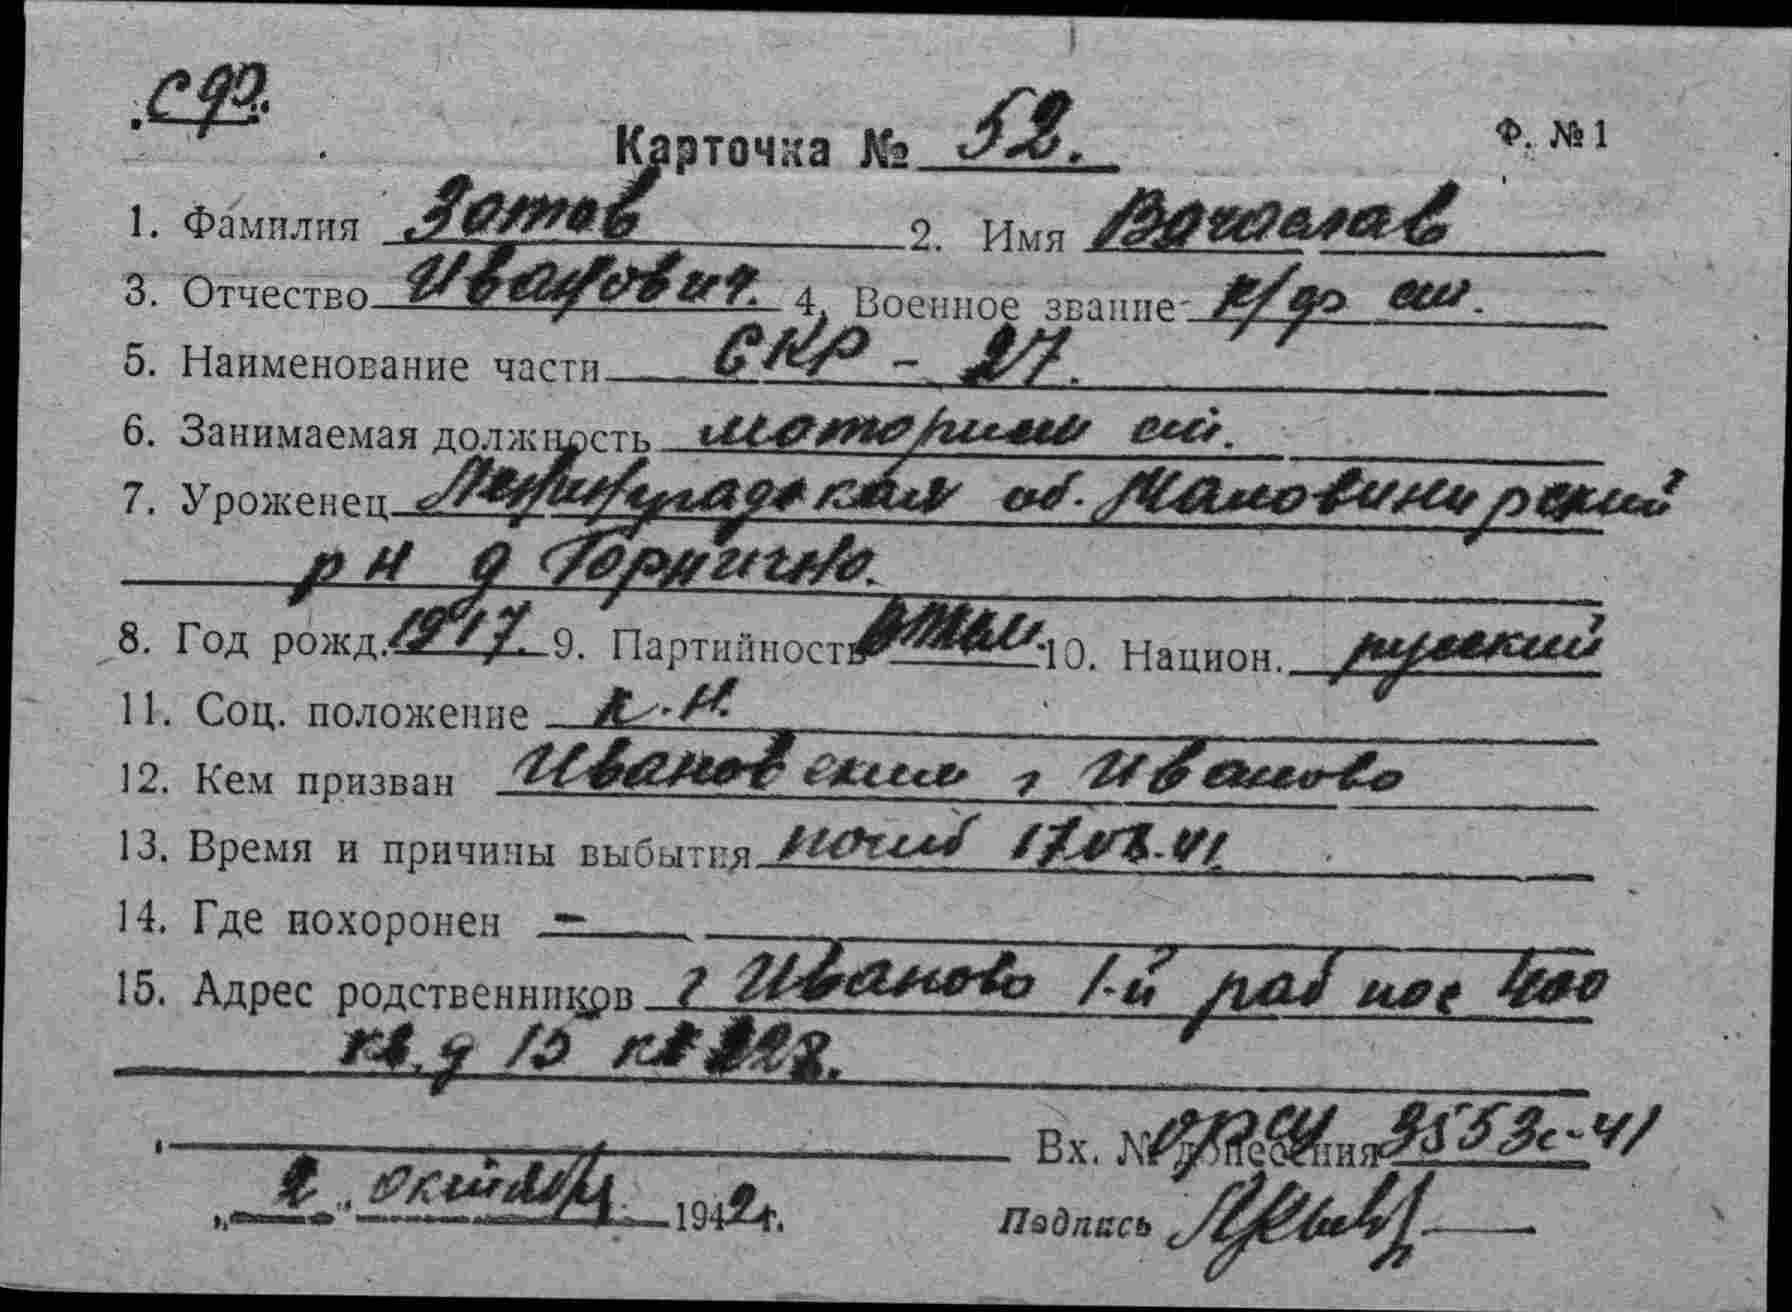 СФ.
Карточка № 52. Ф. № 1
1. Фамилия Зотов 2. Имя Вячаслав
3. Отчество Иванович. 4. Военное звание к/ф ст.
5. Наименование части СКР - 27.
6. Занимаемая должность моторист ст.
7. Уроженец Ленинградская об. Маловишерский
р н д Горнично.
8. Год рожд. 1917. 9. Партийность 10. Национ. русский
11. Соц. положение к. н.
12. Кем призван Ивановским г Иваново
13. Время и причины выбытия погиб
14. Где похоронен —
15. Адрес родственников г Иваново 1-й раб пос 400
кв. д 15 кв
Вх. № донесения 3553с-41
„2“ октября 1942г. Подпись